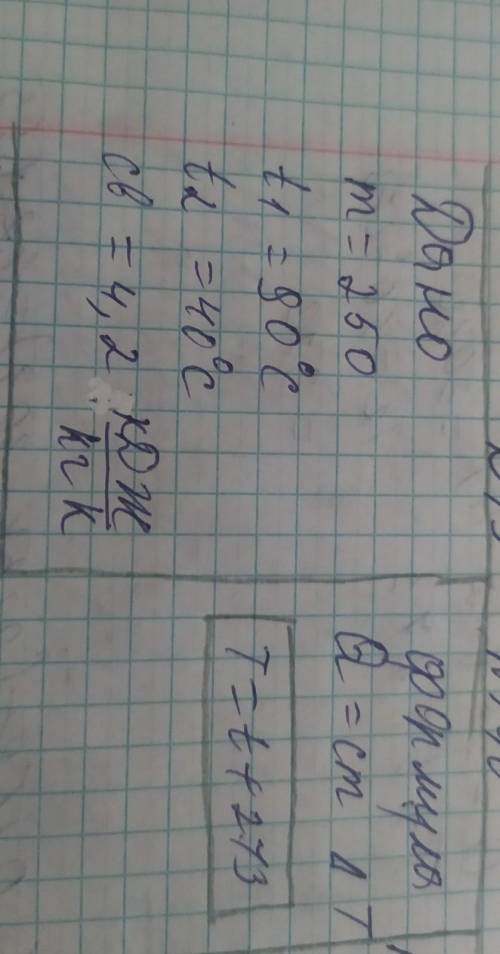 Дано
m = 250
t1 = 90°C
t2 = 40°C
cв = 4,2 кДж/кг К
формула
Q = cm Δ T
T = t + 273